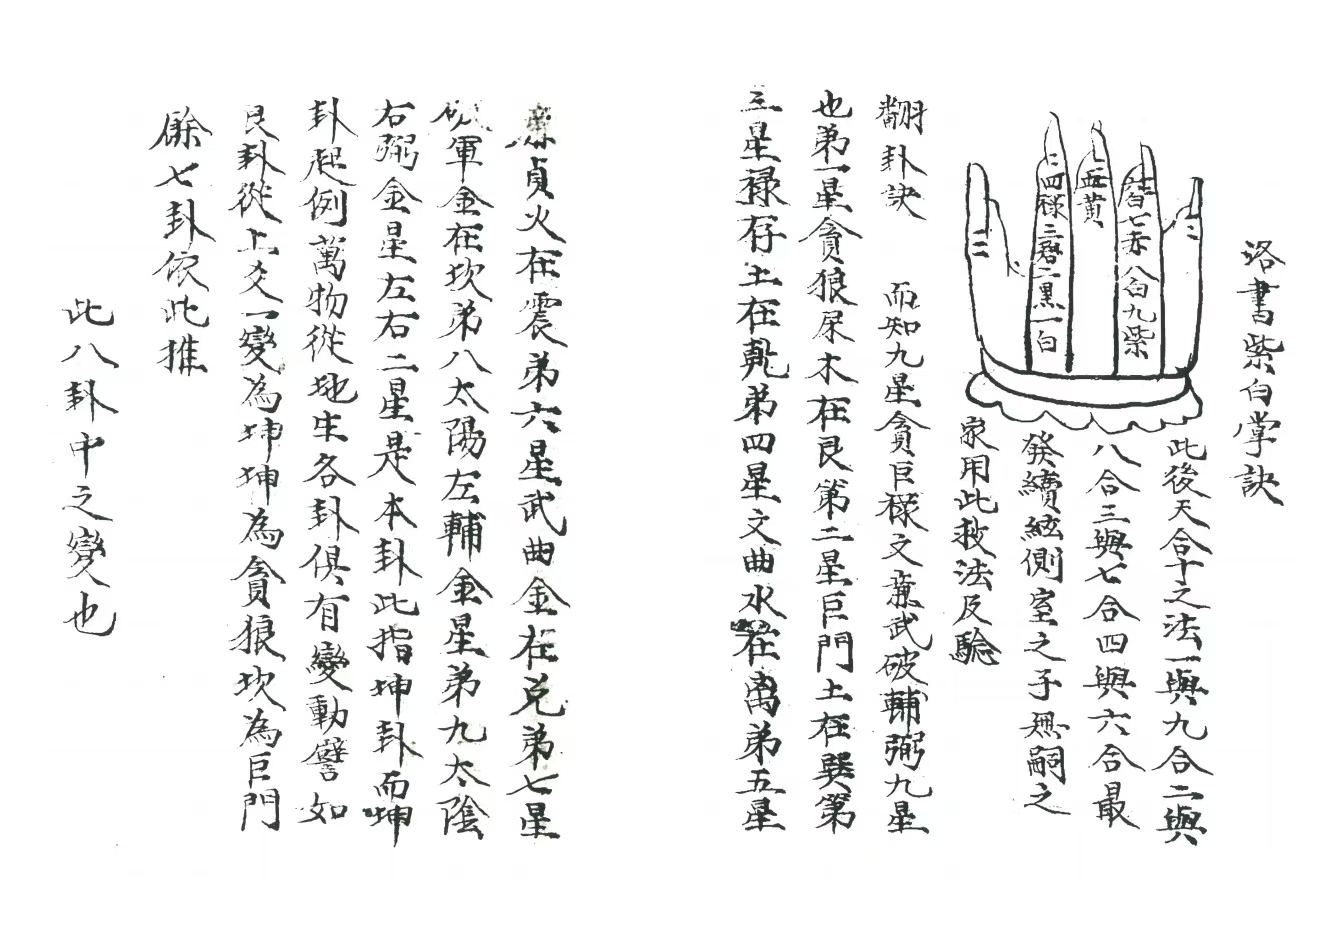 洛書紫白掌訣
六白七赤八白九紫
五黃
四祿三碧二黑一白
此後天合十之法一與九合二與
八合三與七合四與六合最
發續絃側室之子無嗣之
家用此救法及驗
翻卦訣 而知九星貪巨祿文廉武破輔弼九星
也弟一星貪狼屎木在艮第二星巨門土在巽第
三星祿存土在乾弟四星文曲水在离弟五星
廉貞火在震弟六星武曲金在兌弟七星
破軍金在坎弟八太陽左輔金星弟九太陰
右弼金星左右二星是本卦此指坤卦而坤
卦起例萬物從地生各卦俱有變動譬如
艮卦從上爻一變為坤坤為貪狼坎為巨門
餘七卦依此推
此八卦中之變也